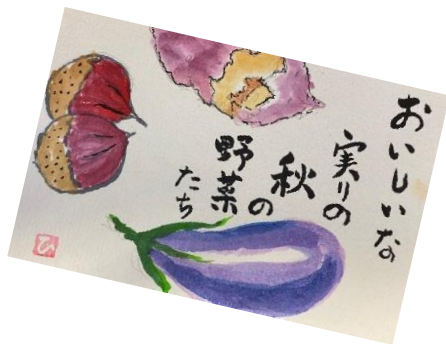 おいしいな
実りの
秋の
野菜
たち
ひ